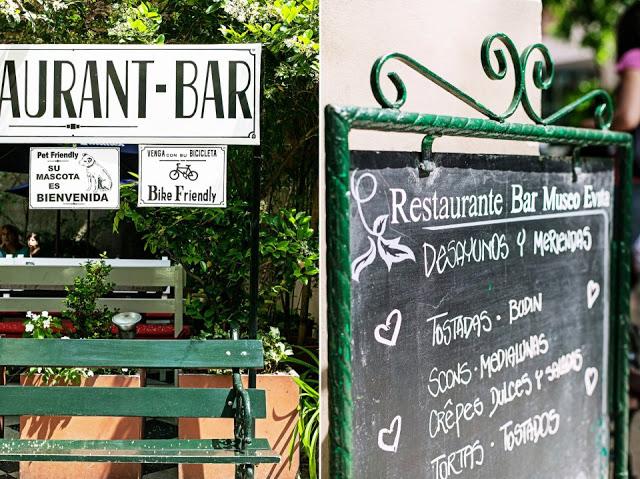 AURANT-BAR
Pet Friendly
SU
MASCOTA
ES
BIENVENIDA
VENGA CON SU BICICLETA
Bike Friendly
Restaurante Bar Museo Evita
DESAYUNOS Y MERIENDAS
TOSTADAS · BUDIN
SCONS · MEDIALUNAS
CRÊPES DULCES Y SALADOS
TORTAS · TOSTADOS